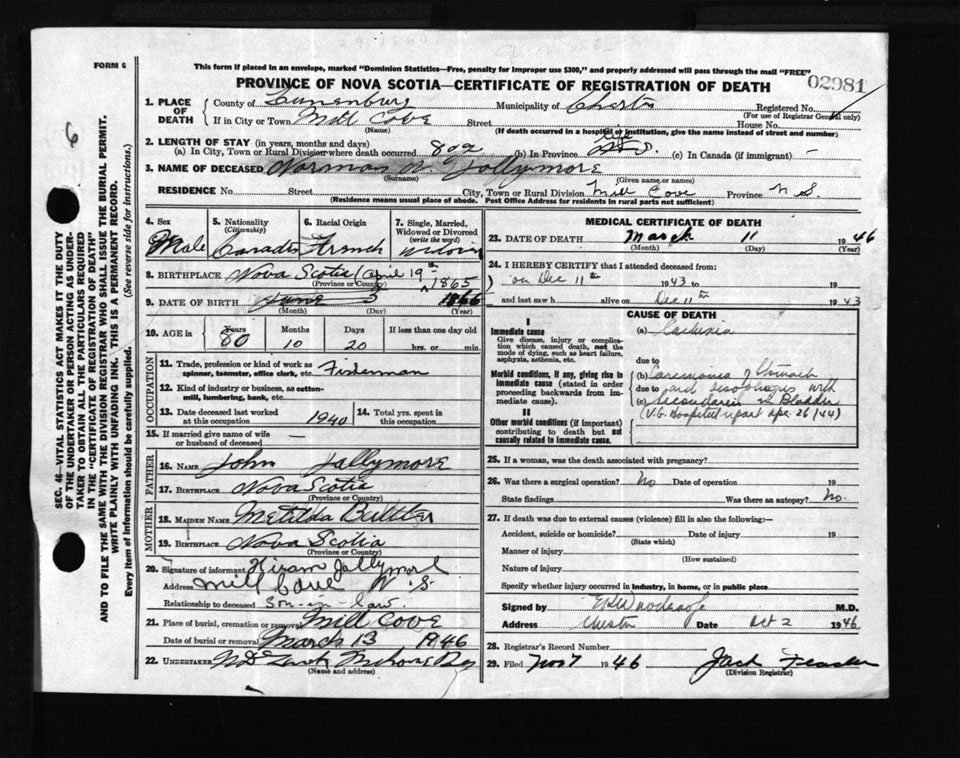 FORM 6
This form if placed in an envelope, marked "Dominion Statistics—Free, penalty for improper use $300," and properly addressed will pass through the mail "FREE"
PROVINCE OF NOVA SCOTIA—CERTIFICATE OF REGISTRATION OF DEATH
02981
6
SEC. 46—VITAL STATISTICS ACT MAKES IT THE DUTY
OF THE UNDERTAKER OR PERSON ACTING AS UNDER-
TAKER TO OBTAIN ALL THE PARTICULARS REQUIRED
IN THE "CERTIFICATE OF REGISTRATION OF DEATH"
AND TO FILE THE SAME WITH THE DIVISION REGISTRAR WHO SHALL ISSUE THE BURIAL PERMIT.
WRITE PLAINLY WITH UNFADING INK. THIS IS A PERMANENT RECORD.
Every item of information should be carefully supplied. (See reverse side for instructions.)
1. PLACE OF DEATH County of Lunenburg Municipality of Chester Registered No.
(For use of Registrar General only)
If in City or Town Mill Cove Street House No.
(Name) (If death occurred in a hospital or institution, give the name instead of street and number)
2. LENGTH OF STAY (in years, months and days)
(a) In City, Town or Rural Division where death occurred (b) In Province life (c) In Canada (if immigrant) -
3. NAME OF DECEASED Norman Jollymore
(Surname) (Given name or names)
RESIDENCE No. Street City, Town or Rural Division Mill Cove Province N S.
(Residence means usual place of abode. Post Office Address for residents in rural parts not sufficient)
4. Sex Male
5. Nationality (Citizenship)
6. Racial Origin French
7. Single, Married, Widowed or Divorced (write the word)
8. BIRTHPLACE Nova Scotia (April 19th 1865)
(Province or Country)
9. DATE OF BIRTH June 3 1866
(Month) (Day) (Year)
10. AGE in Years 80 Months 10 Days 20 If less than one day old hrs. or min.
OCCUPATION
11. Trade, profession or kind of work as spinner, teamster, office clerk, etc. Fisherman
12. Kind of industry or business, as cotton-mill, lumbering, bank, etc.
13. Date deceased last worked at this occupation 1940
14. Total yrs. spent in this occupation
15. If married give name of wife or husband of deceased —
FATHER
16. NAME John Jollymore
17. BIRTHPLACE Nova Scotia
(Province or Country)
MOTHER
18. MAIDEN NAME Metilda
19. BIRTHPLACE Nova Scotia
(Province or Country)
20. Signature of informant Hiram Jollymore
Address Mill Cove N. S
Relationship to deceased son-in-law
21. Place of burial, cremation or removal Mill Cove
Date of burial or removal March 13 1946
22. UNDERTAKER Mahone Bay
(Name and address)
MEDICAL CERTIFICATE OF DEATH
23. DATE OF DEATH March 11 1946
(Month) (Day) (Year)
24. I HEREBY CERTIFY that I attended deceased from:
on Dec 11th 1943 to 19
and last saw h alive on Dec 11th 1943
CAUSE OF DEATH
I
Immediate cause
Give disease, injury or complication which caused death, not the mode of dying, such as heart failure, asphyxia, asthenia, etc.
(a) Cachexia
due to
Morbid conditions, if any, giving rise to immediate cause (stated in order proceeding backwards from immediate cause).
(b) Carcinoma of Stomach
due to and esophagus with
(c) secondaries in Bladder
(V.G. Hospital report Apr 26/44)
II
Other morbid conditions (if important) contributing to death but not causally related to immediate cause.
25. If a woman, was the death associated with pregnancy?
26. Was there a surgical operation? No Date of operation 19
State findings Was there an autopsy? No.
27. If death was due to external causes (violence) fill in also the following:—
Accident, suicide or homicide? Date of injury 19
(State which)
Manner of injury
(How sustained)
Nature of injury
Specify whether injury occurred in industry, in home, or in public place
Signed by M.D.
Address Chester Date Oct 2 1946
28. Registrar's Record Number
29. Filed Nov 7 1946 Jack
(Division Registrar)